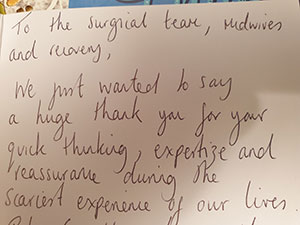 To the surgical team, midwives
and recovery,
We just wanted to say
a huge thank you for your
quick thinking, expertise and
reassurance during the
scariest experience of our lives.